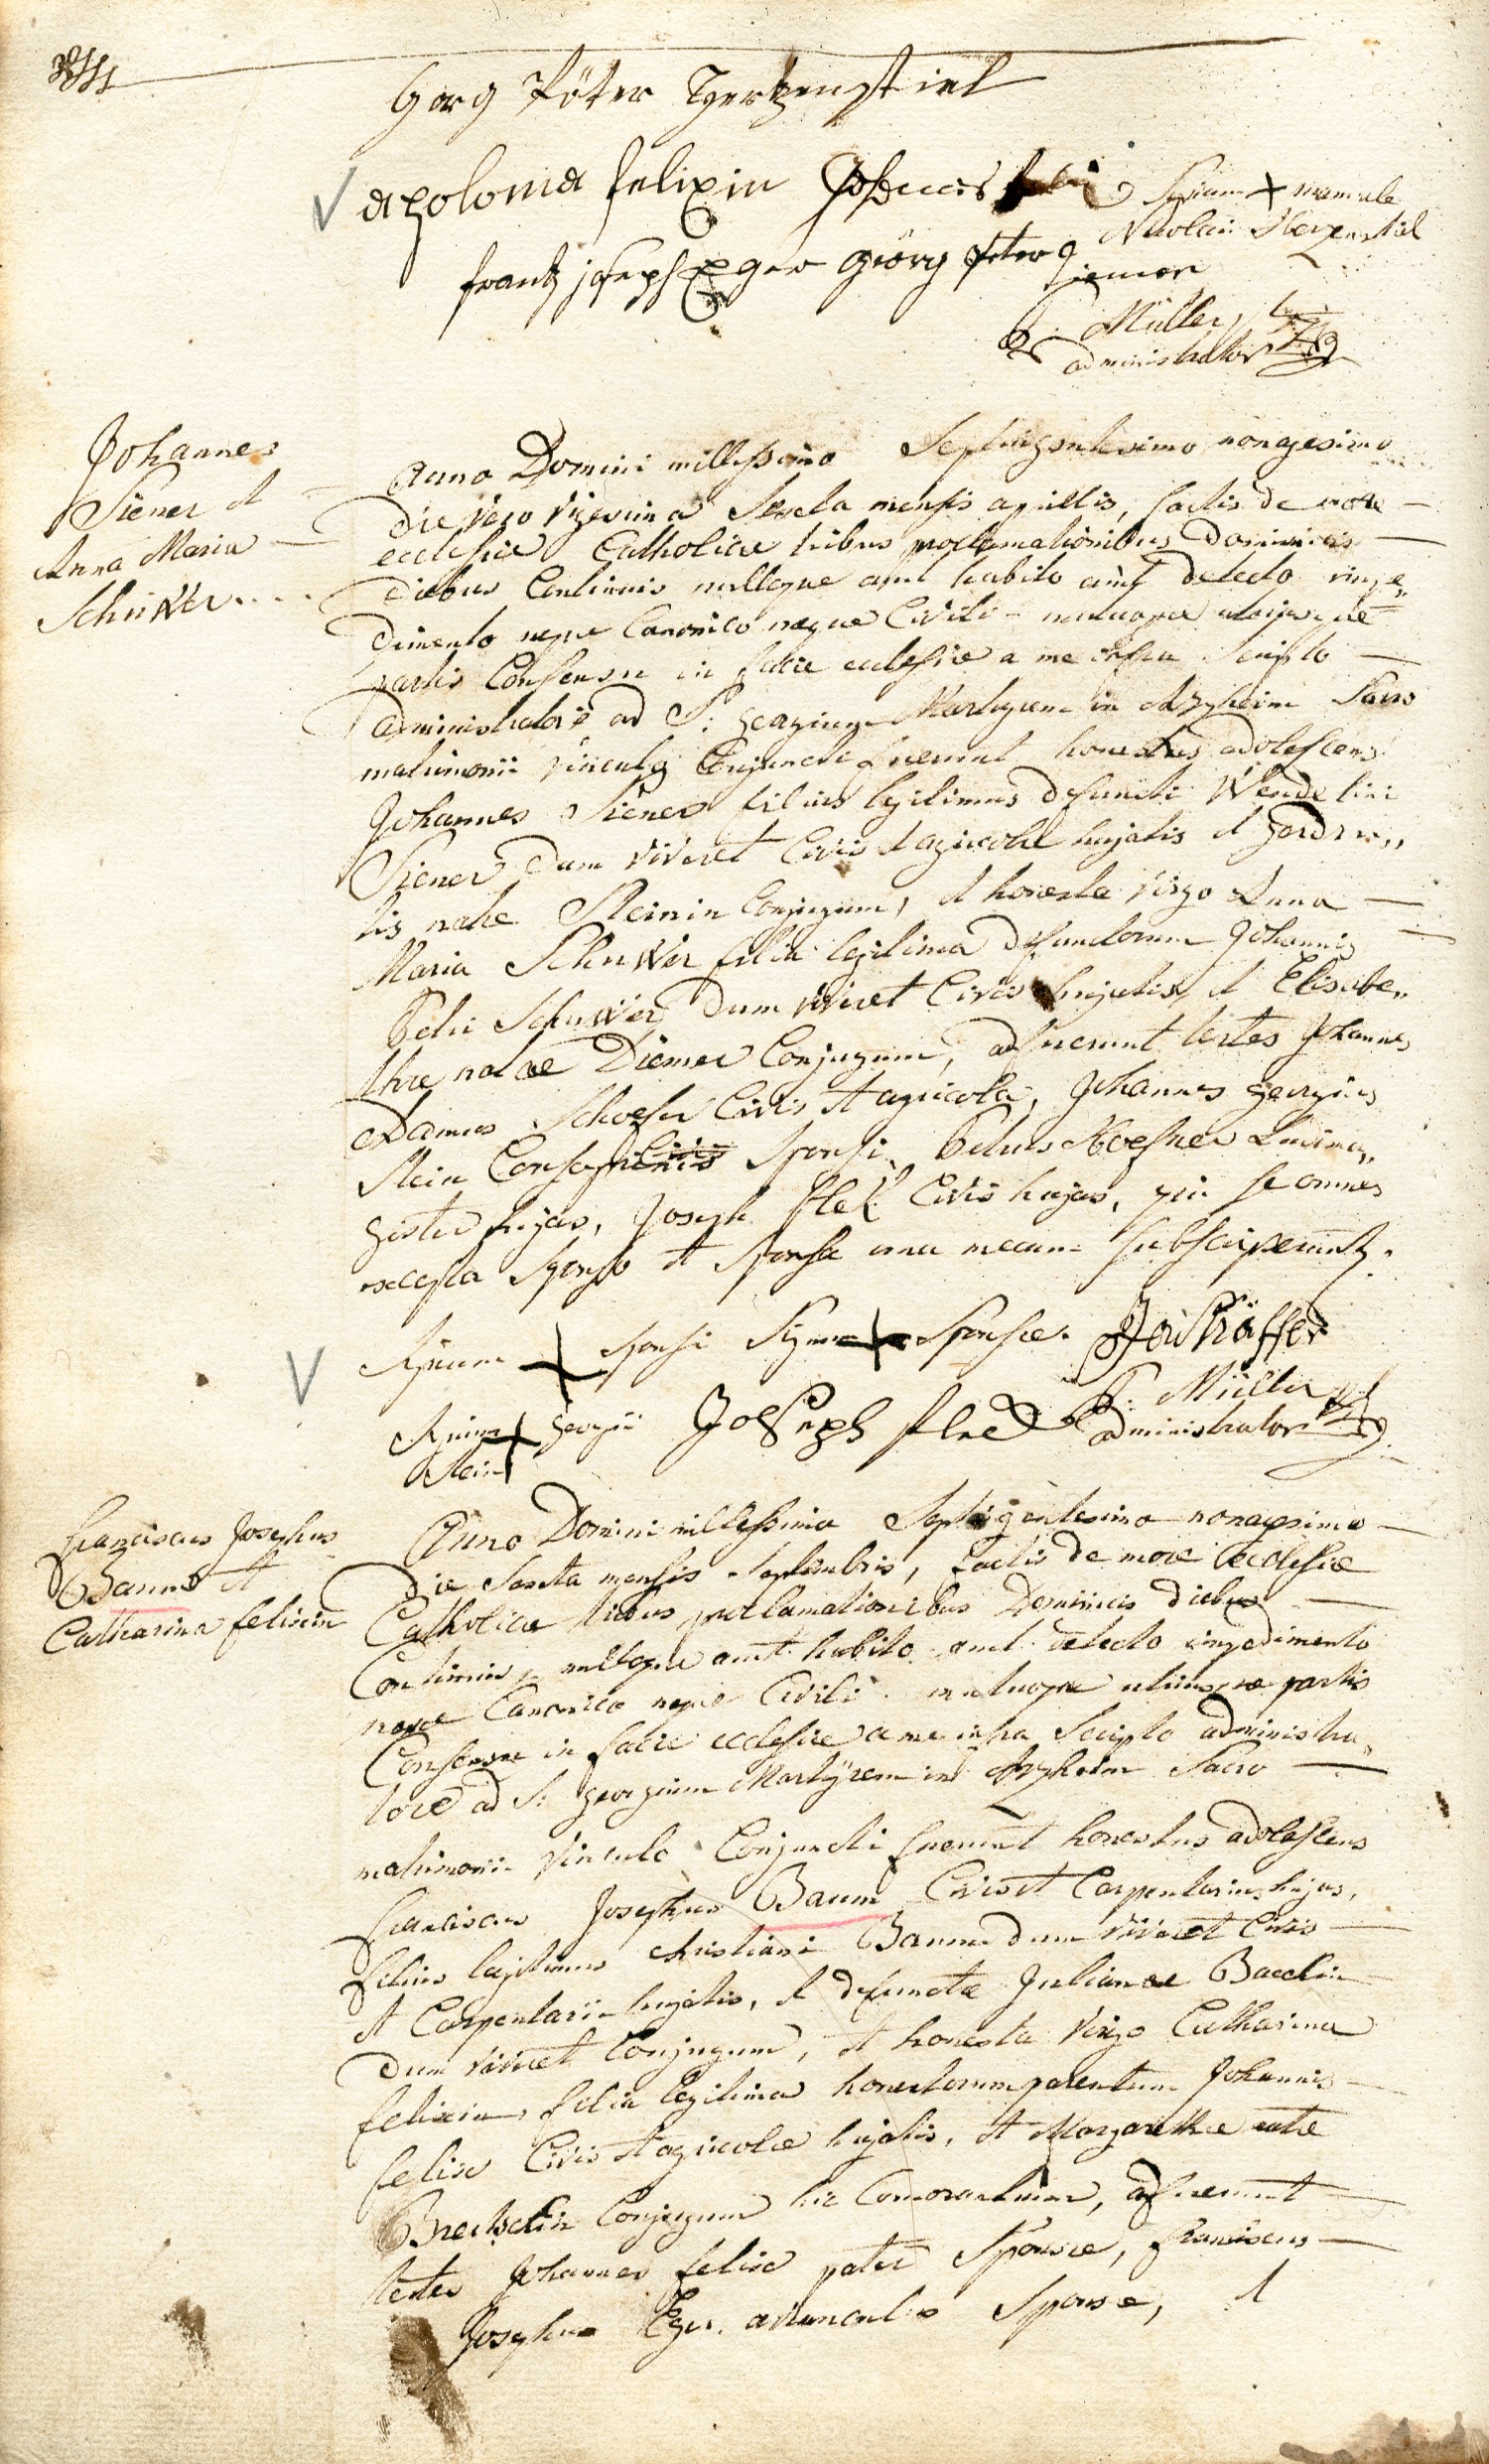 Georg Peter Hertzenstiel
apolonia felixin Johannes
Signum + manuale
Nicolai Herzenstiel
frantz joseph Eger Görg Peter
Siener
P. Müller,
administrator
Johannes
Siener et
Anna Maria
Schuwer...
Anno Domini millessimo Septingentesimo nonagesimo
die vero vigesima Sexta mensis aprillis, factis de more
ecclesiæ Catholicæ tribus proclamationibus Dominicis
diebus Continuis nulloque aut habito aut detecto impe„
dimento neque Canonico neque Civili - mutuoque utriusque
partis Consensu in facie ecclesiæ a me infra Scripto
administratore ad S: Georgium Martyrem in Arzheim Sacro
matrimonii vinculo Conjuncti fuerunt honestus adolescens
Johannes Siener filius legitimus defuncti Wendelini
Siener dum viveret Civis et agricolæ hujatis et Gerdru„
dis natæ Steinin Conjugum, et honesta virgo Anna
Maria Schuwer filia legitima defunctorum Johannis
Petri Schuwer dum viveret Civis hujatis, et Elisabe„
thæ natæ Diemer Conjugum, adfuerunt testes Johannes
Adamus Schoefer Civis et agricola, Johannes Georgius
Stein Sponsi, Petrus Hoefner Ludima„
gister hujas, Joseph flek Civis hujas, qui se omnes
excepta Sponso et Sponsa una mecum subscripserunt.
Signum + Sponsi Signum + Sponsæ. J A Schäffer
Signum + Georgii Joseph fleck P. Müller
Stein administrator
Franciscus Josephus
Baum et
Catharina felixin
Anno Domini millessimo Septingentesimo nonagesimo
die Sexta mensis Septembris, factis de more Ecclesiæ
Catholicæ tribus proclamationibus Dominicis diebus
Continuis, nulloque aut habito aut detecto impedimento
neque Canonico neque Civili mutuoque utriusque partis
Consensu in facie ecclesiæ a me infra Scripto administra„
tore ad S: Georgium Martyrem in Arzheim Sacro
matrimonii vinculo Conjuncti fuerunt honestus adolescens
Franciscus Josephus Baum Civis et Carpentarius hujas,
filius legitimus Christiani Baum dum viveret Civis
et Carpentarii hujatis, et defunctæ Julianæ Bacchin
dum viveret Conjugum, et honesta virgo Catharina
felixin, filia legitima honestorum parentum Johannis
felix Civis et agricolæ hujatis, et Margarethæ natæ
Conjugum hic Comorantium, adfuerunt
testes Johannes felix pater Sponsæ, franciscus
Josephus Eger avunculus Sponsæ, et